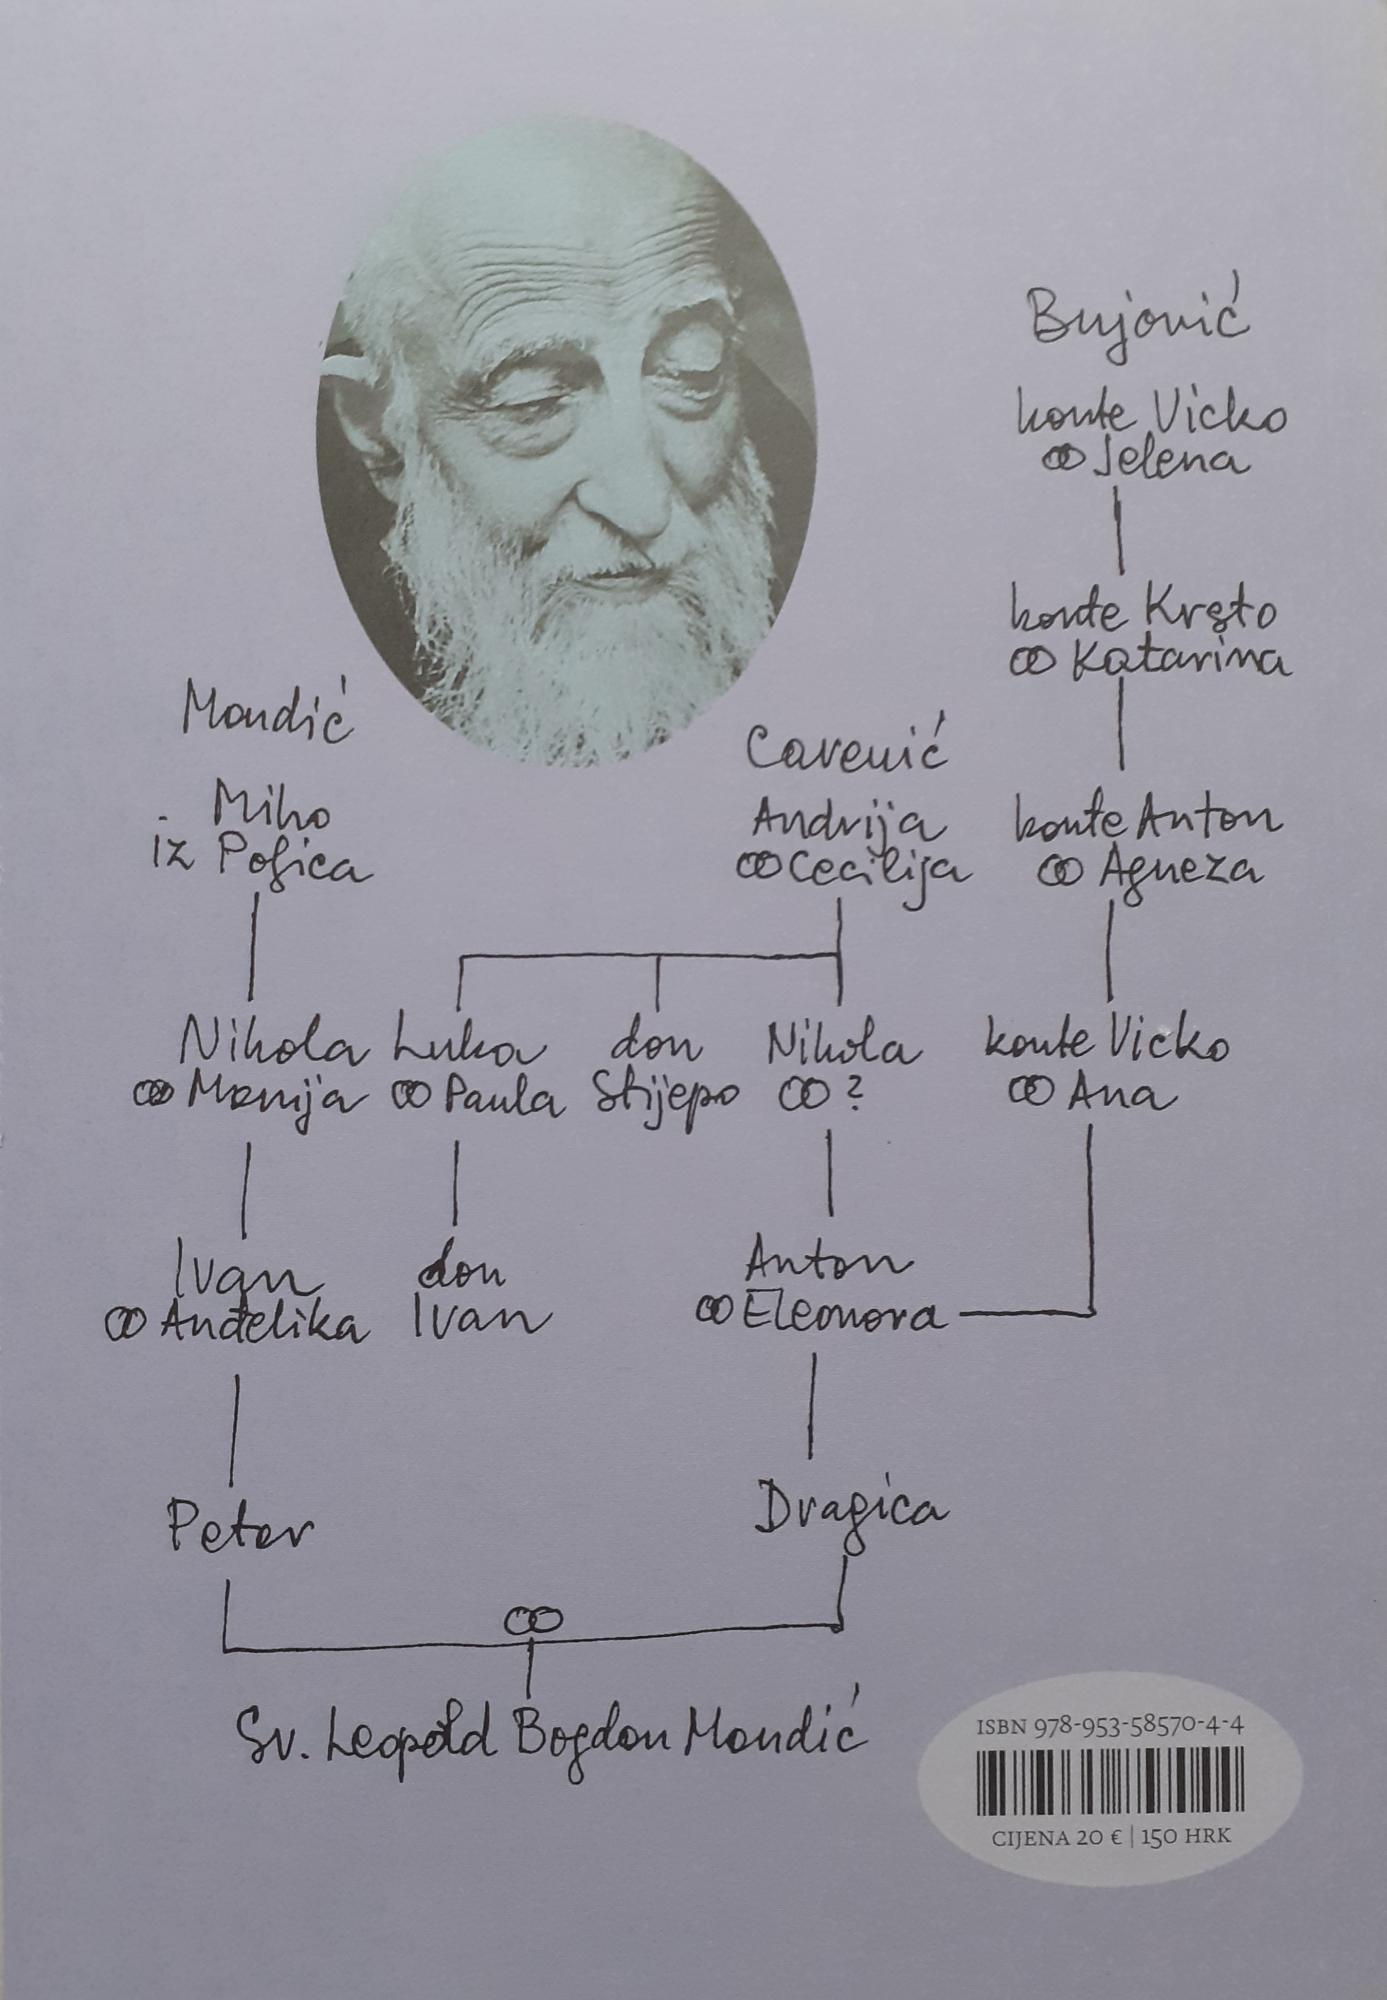 Bujović
konte Vicko
∞ Jelena
konte Krsto
∞ Katarina
Mandić
Carević
Miho
iz Poljica
Andrija
∞ Cecilija
konte Anton
∞ Agneza
Nikola
∞ Marija
Luka
∞ Paula
don
Stijepo
Nikola
∞ ?
konte Vicko
∞ Ana
Ivan
∞ Anđelika
don
Ivan
Anton
∞ Eleonora
Petar
Dragica
∞
Sv. Leopold Bogdan Mandić
ISBN 978-953-58570-4-4
CIJENA 20 € | 150 HRK